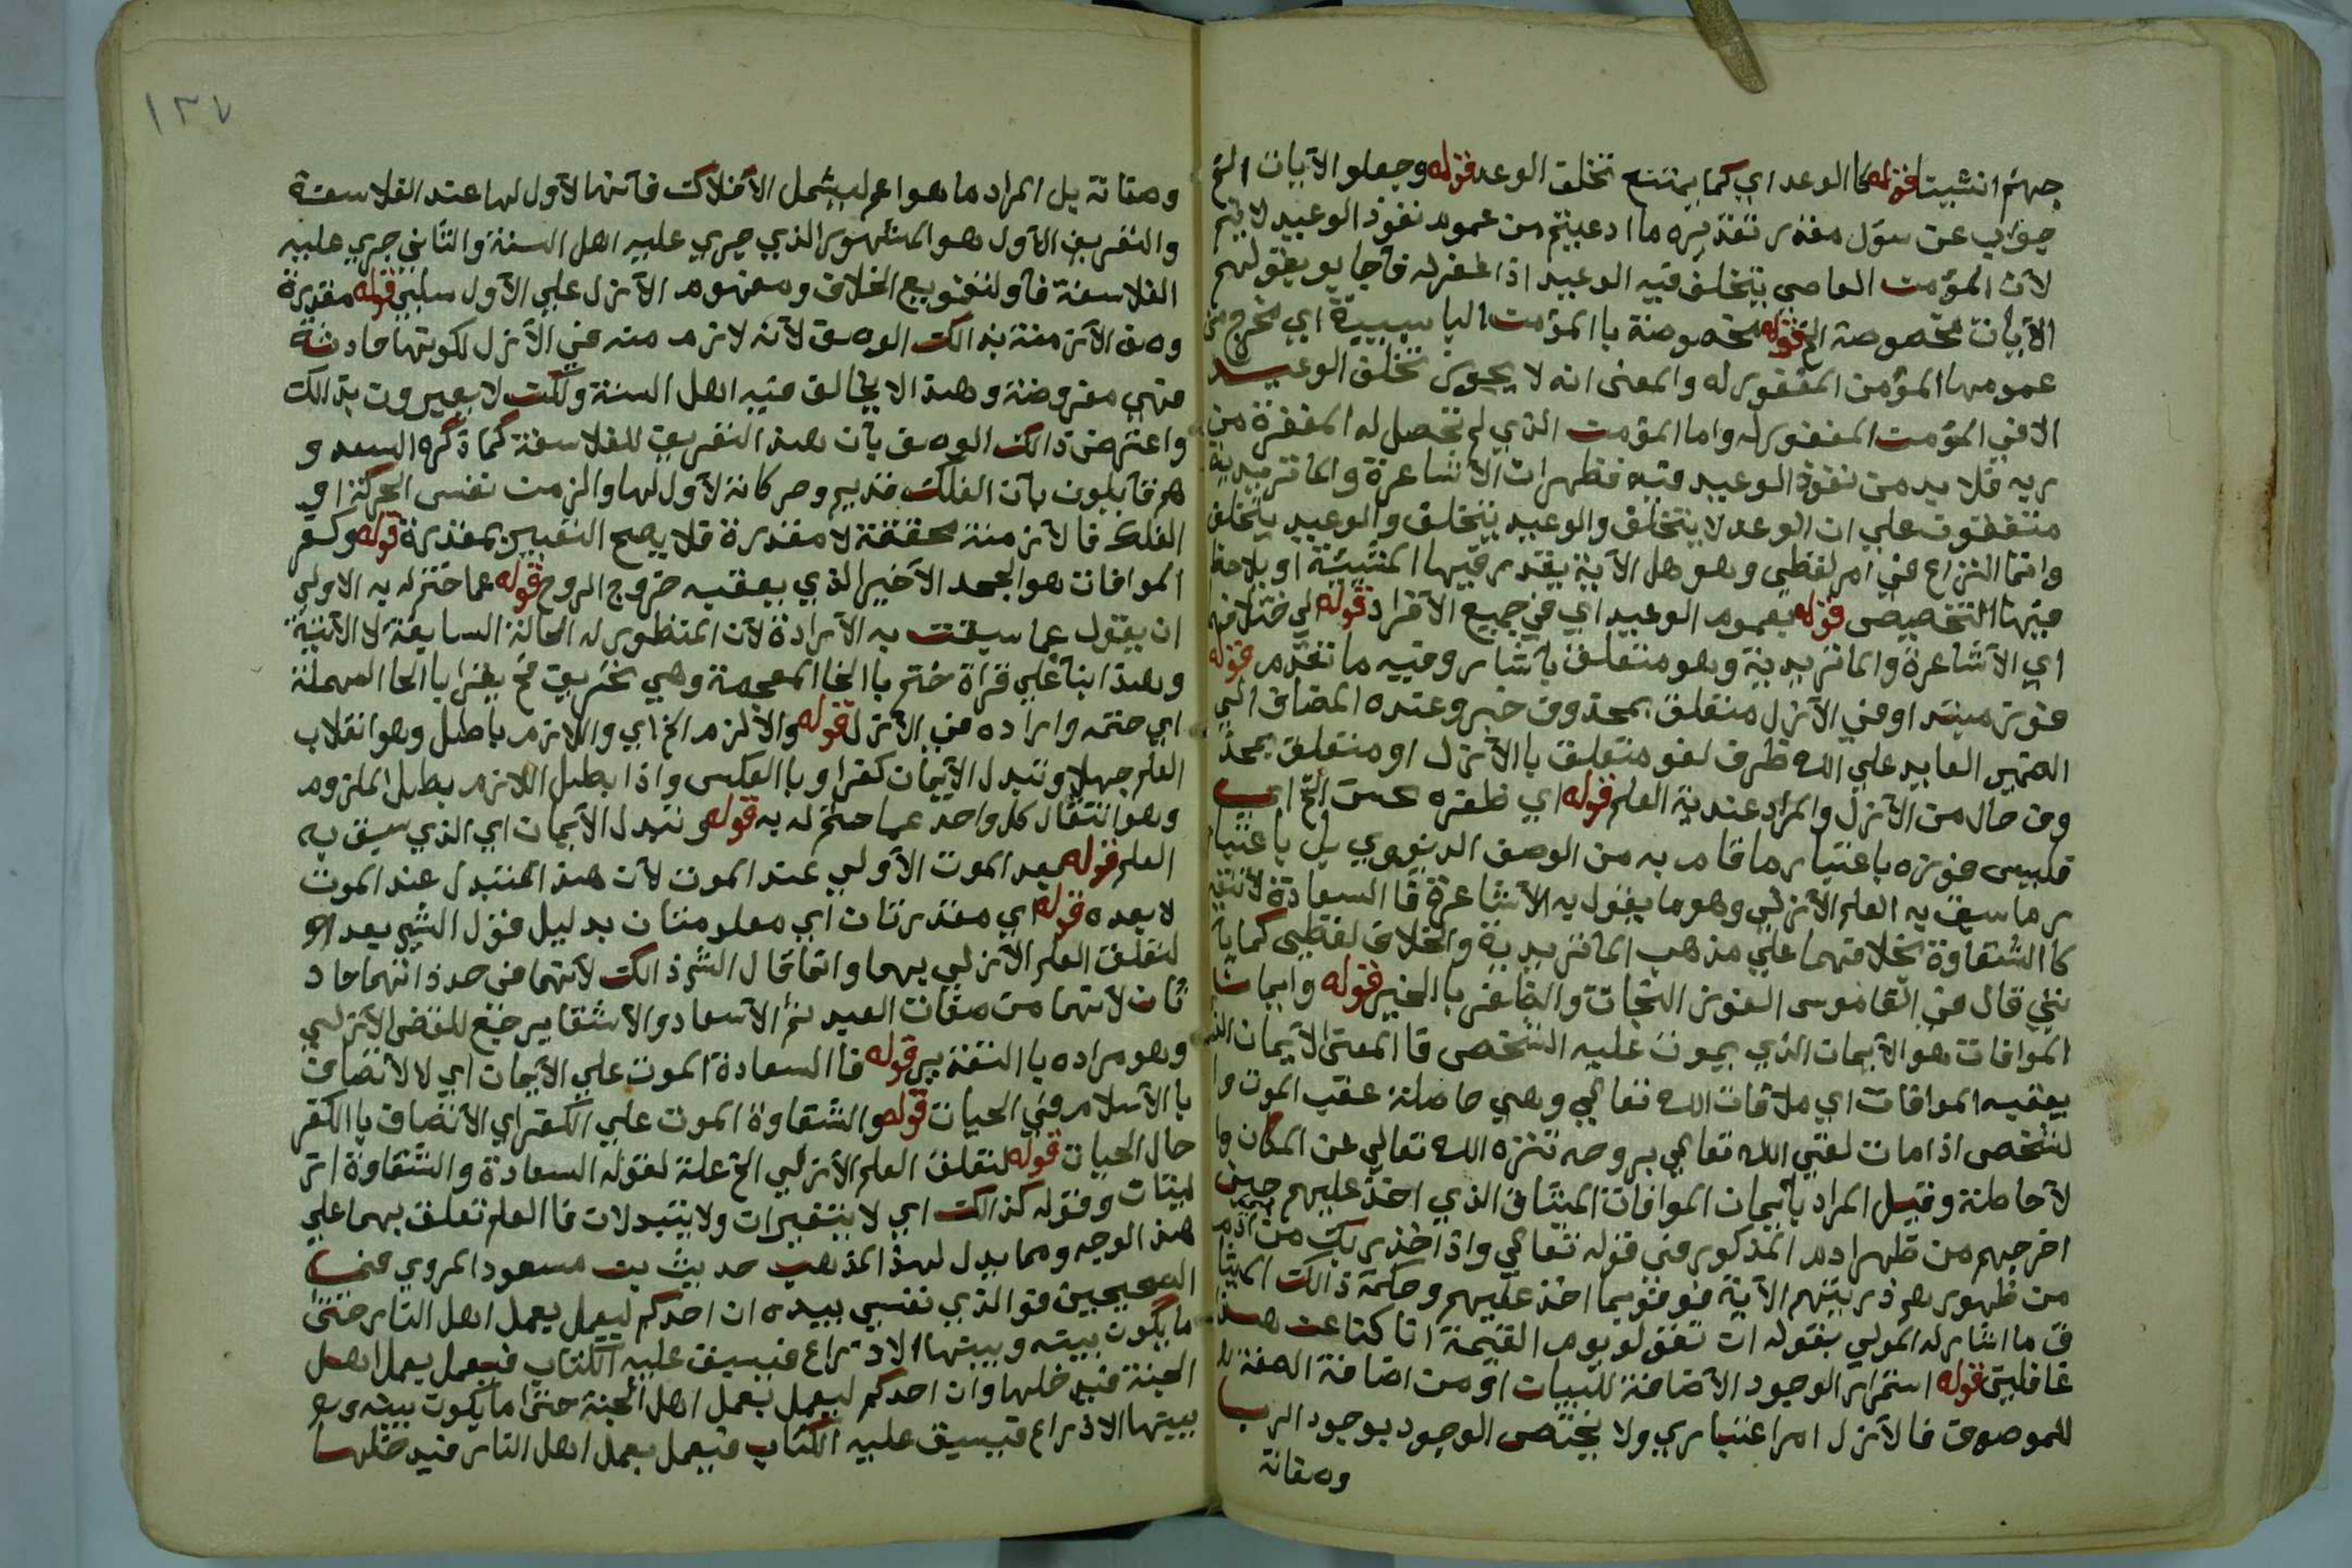 جهنم ان شيت قوله كا الوعد اي كما يمتنع تخلف الوعد قوله وجعلو الآيات الخ
جواب عن سؤل مقدر تقديره ما ادعيتم من عموم نفوذ الوعيد لا يتم
لآن المؤمن العاصي يتخلف فيه الوعيد اذا غفر له فآجابو بقولهم
الآيات مخصوصة الخ قوله مخصوصة با المؤمن اليا سببية اي مخرج من
عمومها المؤمن المغفور له والمعنى انه لا يجوز تخلف الوعيد
الا في المؤمن المغفور له واما المؤمن الذي لم تحصل له المغفرة من
ربه فلا بد من نفوذ الوعيد فيه فظهر ان الآشاعرة والماتريدية
متفقون علي ان الوعد لا يتخلف والوعيد يتخلف والوعيد يتخلف
وانما النزاع في امر لفظي وهو هل الآية يقدر فيها المشيئة او يلاحظ
فيها التخصيص قوله بعموم الوعيد اي في جميع الآفراد قوله لي ختلافه
اي الآشاعرة والماتريدية وهو متعلق بآشار وفيه ما تقدم قوله
فوز مبتد او في الآزل متعلق بمحذوف خبر وعنده المضاف الي
الضمير العايد علي الله ظرف لغو متعلق با الآزل او متعلق بمحذ
وف حال من الآزل والمراد عندية العلم قوله اي ظفره بحسن الخ اي
فليس فوزه باعتبار ما قام به من الوصف الدنيوي بل باعتبا
ر ما سبق به العلم الآزلي وهو ما يقول به الآشاعرة فا السعادة لا تتغير
كا الشقاوة بخلافهما علي مذهب الماتريدية والخلاف لفظي كما يآ
تي قال في القاموس الفوز النجات والظفر با الخير قوله وايمان
الموافات هو الآيمان الذي يموت عليه الشخص فا المعنى الآيمان الذي
يعقبه الموافات اي ملاقات الله تعالي وهي حاصلة عقب الموت وا
لشخص اذا مات لقي الله تعالي بروحه تنزه الله تعالي عن المكان وا
لآحاطة وقيل المراد بآيمان الموافات الميثاق الذي اخذ عليهم حين
اخرجهم من ظهر ادم المذكور في قوله تعالي واذ اخذ ربك من بني آدم
من ظهورهم ذريتهم الآية فوفو بما اخذ عليهم وحكمة ذالك الميثا
ق ما اشار له المولي بقوله ان تقولو يوم القيمة انا كنا عن هذا
غافلين قوله استمرار الوجود الآضافة للبيان او من اضافة الصفة
للموصوف فا الآزل امر اعتباري ولا يختص الوجود بوجود الرب
وصفاته
١٣٧
وصفاته بل المراد ما هو اعم ليشمل الآفلاك فآنها لآول لها عند الفلاسفة
والتعريف الآول هو المشهور الذي جري عليه اهل السنة والثاني جري عليه
الفلاسفة فآو لتنويع الخلاف ومفهوم الآزل علي الآول سلبي قوله مقدرة
وصف الآزمنة بذالك الوصف لآنه لا زمن في الآزل لكونها حادثة
فهي مفروضة وهذا لا يخالف فيه اهل السنة ولكن لا يعبرون بذالك
واعترض ذالك الوصف بآن هذا التعريف للفلاسفة كما ذكره السعد و
هم قآيلون بآن الفلك قديم وحركاته لآول لها والزمن نفس الحركة او
الفلك فا لآزمنة محققة لا مقدرة فلا يصح التعبير بمقدرة قوله وكفر
الموافات هو الجحد الآخير الذي يعقبه خروج الروح قوله عما ختم له به الاولي
ان يقول عما سبقت به الآرادة لآن المنظور له الحالة السابقة لا الآتية
وهذا ابنا علي قرأة ختم با الخا المعجمة وهي تحريف فتح يقرا با الحا المهملة
اي حتمه واراده في الآزل قوله والآ لزم الخ اي واللازم باطل وهو انقلاب
العلم جهلا وتبدل الآيمان كفرا وبا العكس واذا بطل اللازم بطل الملزوم
وهو انتقال كل واحد عما حتم له به قوله وتبدل الآيمان اي الذي سبق به
العلم قوله بعد الموت الآولي عند الموت لآن هذا المتبدل عند الموت
لا بعده قوله اي مقدرتان اي معلومتان بدليل قول الش بعد او
لتعلق العلم الآزلي بهما وانما قال الش ذالك لآنهما في حد ذاتهما حاد
ثان لآنهما من صفات العبد نعم الآسعاد والآشقا يرجع للقضا الآزلي
وهو مراده با التقدير قوله فا السعادة الموت علي الآيمان اي لا لآتصاف
با الآسلام في الحيات قوله والشقاوة الموت علي الكفر اي الآتصاف با الكفر
حال الحيات قوله لتعلق العلم الآزلي الخ علة لقوله السعادة والشقاوة از
ليتان وقوله كذالك اي لا يتغيران ولا يتبدلان فا العلم تعلق بهما علي
هذ الوجه ومما يدل لهذ المذهب حديث بن مسعود المروي في
الصحيحين فو الذي نفسي بيده ان احدكم ليعمل بعمل اهل النار حتى
ما يكون بينه وبينها الا ذراع فيسبق عليه الكتاب فيعمل بعمل اهل
الجنة فيدخلها وان احدكم ليعمل بعمل اهل الجنة حتى ما يكون بينه و
بينها الا ذراع فيسبق عليه الكتاب فيعمل بعمل اهل النار فيدخلها